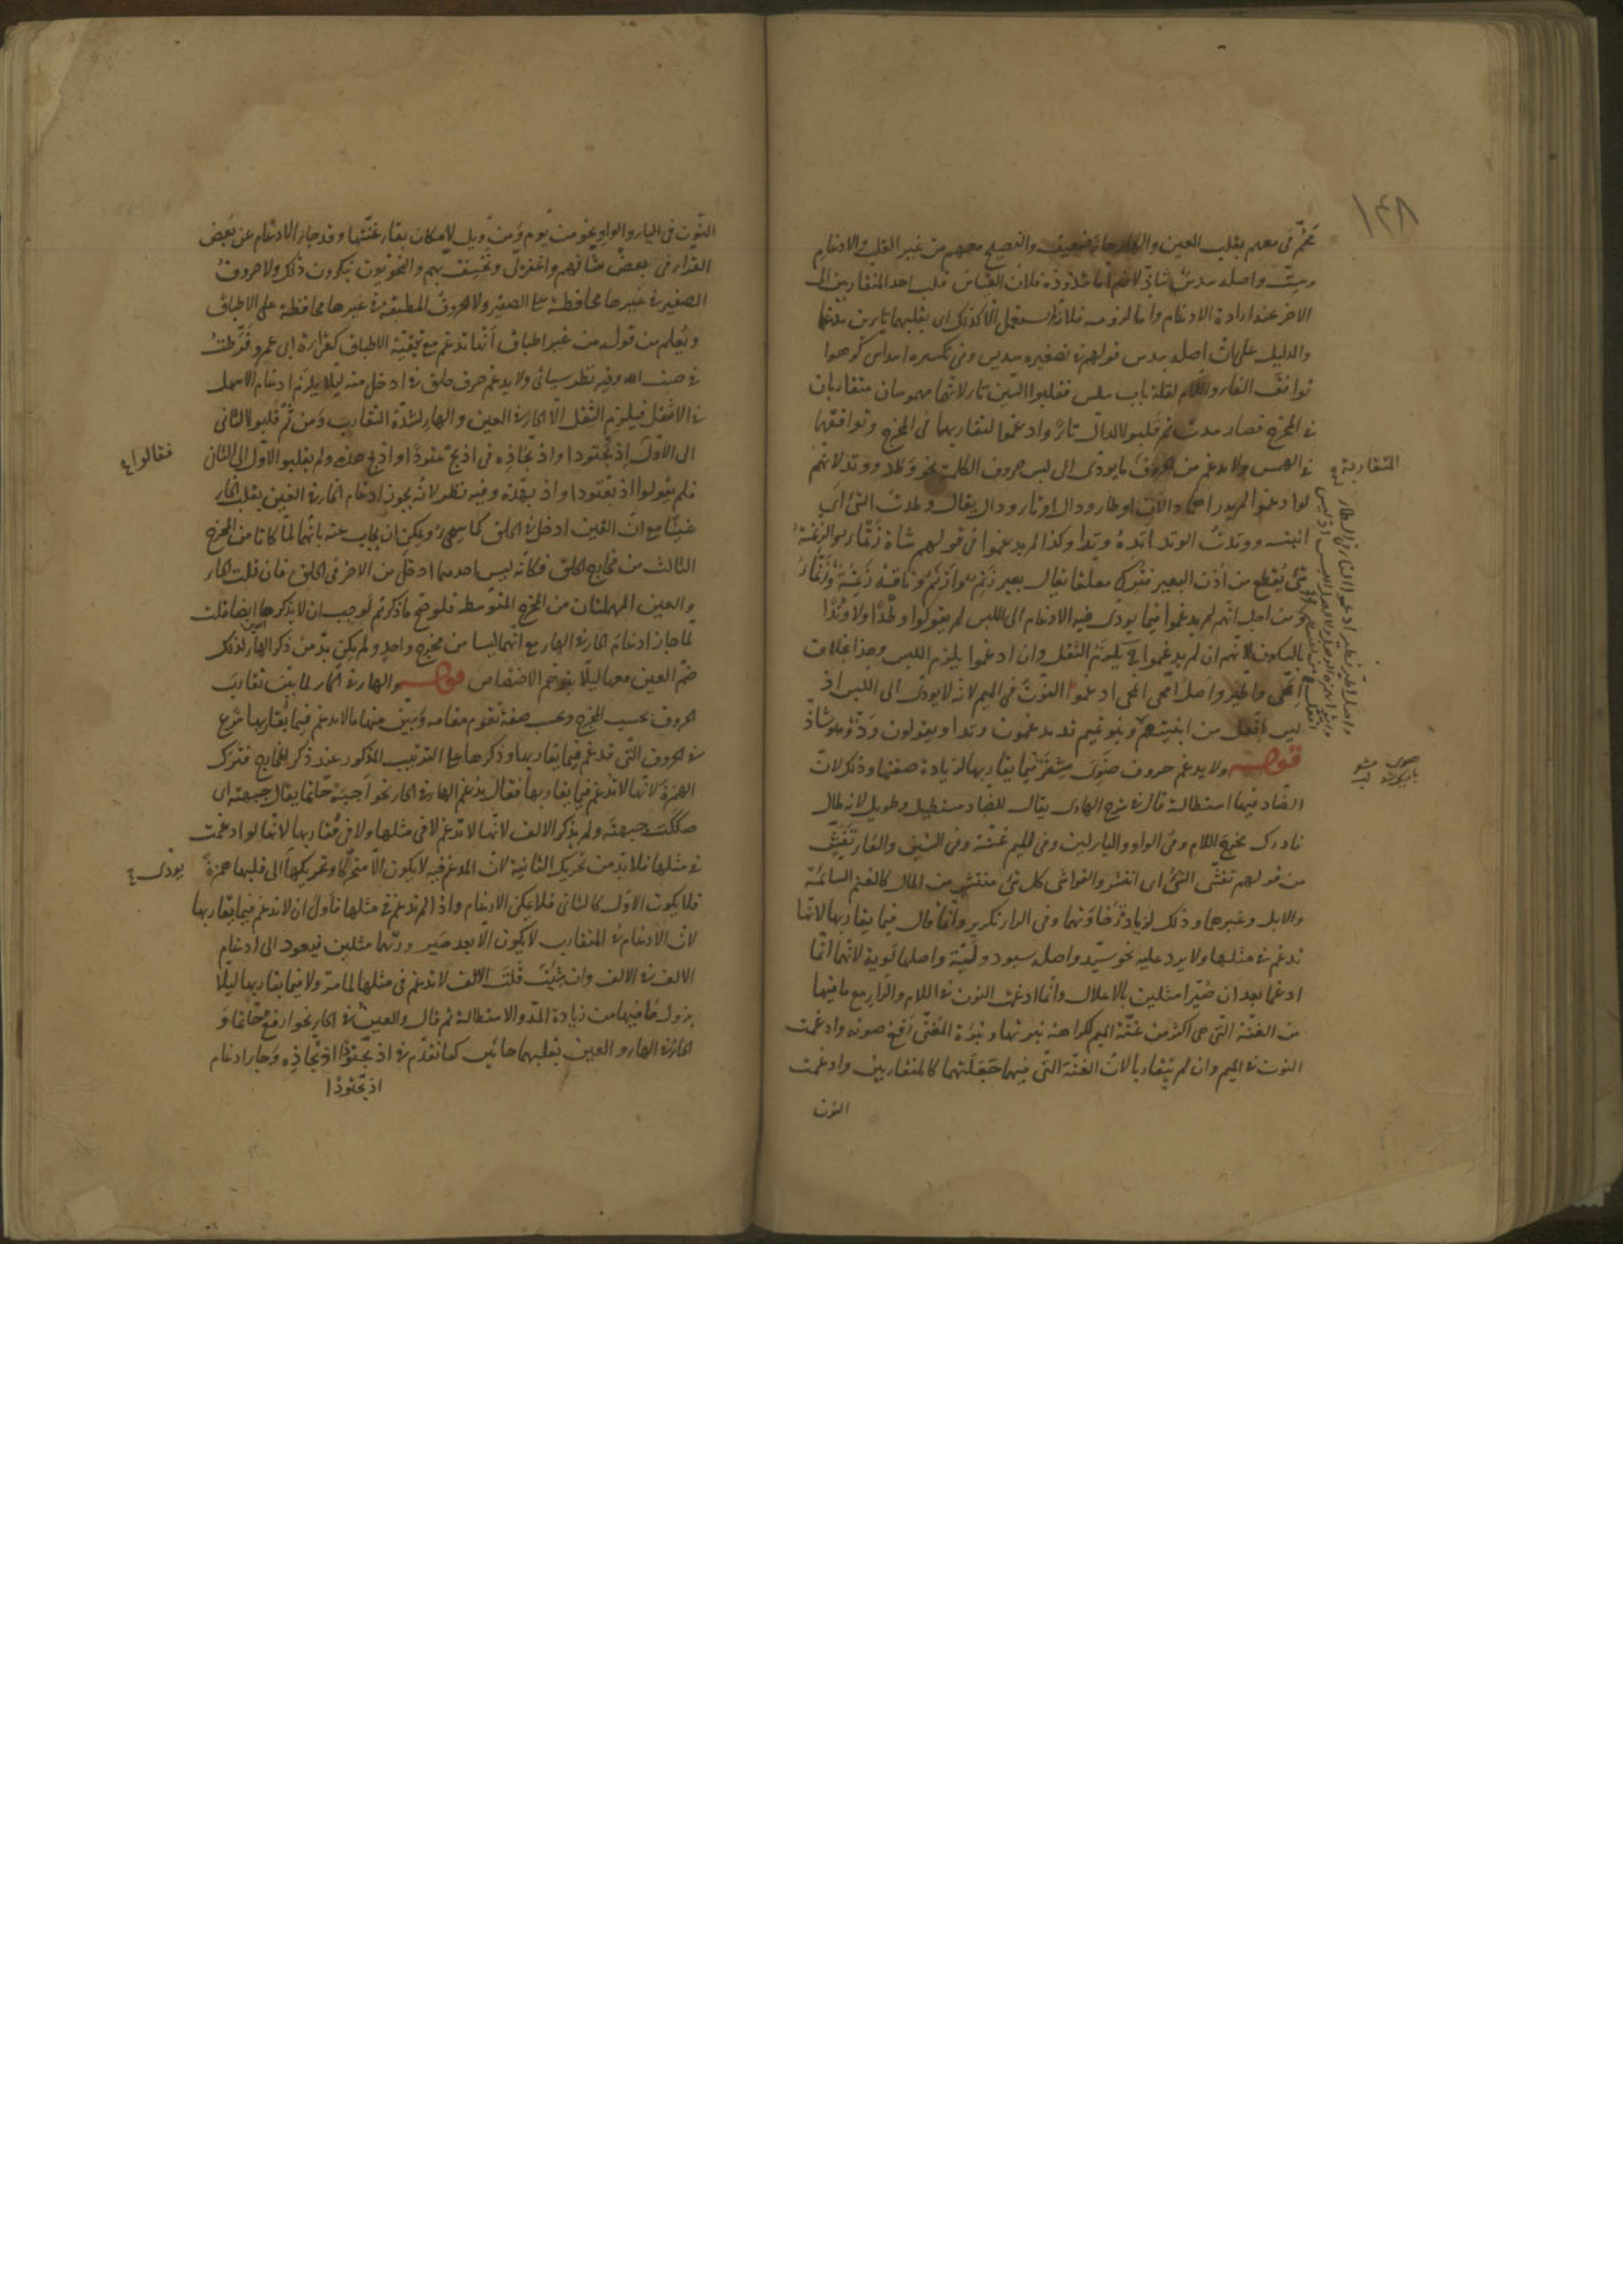 ١٤٨
محّم فى معهم بقلب العين والهاء حاء ضعيف والفصيح معهم من غير القلب والادغام
وستّ واصله سدس شاذ لازم اما شذوذه فلان القياس قلب احد المتقاربين الى
الاخر عند ارادة الادغام وأما لزومه فلانه لم يستعمل الا كذلك اى بقلبهما تاءين مدغما
والدليل على ان اصله سدس قولهم فى تصغيره سديس وفى تكسيره اسداس كرهوا
توافق الفاء واللام لقلة باب سلس فقلبوا السّين تاء لانهما مهموسان متقاربان
فى المخرج فصار سدت ثم قلبوا الدال تاءً وادغموا لتقاربهما فى المخرج وتوافقهما
فى الهمس ولا يدغم من الحروف المتقاربة ما يودّى الى لبس حروف الكلمة نحو وَطد ووتد لانهم
لو ادغموا لم يدر اهما دالان او طاء ودال او تاء ودال يقال وطدتُ الشئ اى
اثبته ووتدتُ الوتد اتدهُ وتدا وكذا لم يدغموا فى قولهم شاة زنماء والزنمة
شئ يُقطع من أذن البعير فيترك معلقا يقال بعير زَنِم وأزنَم وناقة زَنِمَة وزَنْماء
ومن اجل انهم لم يدغموا فيما يودّى فيه الادغام الى اللبس لم يقولوا وطْدًا ولا وتْدًا
بالسكون لانهم ان لم يدغموا يلزم الثقل وان ادغموا يلزم اللبس وهذا بخلاف
امّحى واطّيّر واصل امّحى انمحى ادغموا النون فى الميم لانه لا يودّى الى اللبس اذ
ليس افّعل من ابنيتهم وبنو تميم قد يدغمون وتدا ويقولون ودّ وهو شاذّ
قوله ولا يدغم حروف ضَوِىَ مِشفَر فيما يقاربها لزيادة صفتها وذلك لان
الضاد فيها استطالة قال فى شرح الهادى يقال للضاد مستطيل وطويل لانه طال
فادرك مخرج اللام وفى الواو والياء لين وفى الميم غنّة وفى الشين والفاء تفشّ
من قولهم تفشّى الشئ اى انتشر والفواشى كل شئ منتشر من المال كالغنم السائمة
والابل وغيرها وذلك لزيادة رخاوتهما وفى الراء تكرير وانما قال فيما يقاربها لانها
تدغم فى مثلها ولا يرد عليه نحو سيّد واصله سيود ولَيّة واصلها لَوية لانهما انّما
ادغما بعد ان صُيّرا مثلين بالاعلال وانما ادغمت النون فى اللام والراء مع ما فيها
من الغنّة التى هى اكثر من غنّة الميم لكراهة نبرتها ونبرة المُغنّى رَفع صوته وادغمت
النون فى الميم وان لم يتقاربا لان الغنّة التى فيهما جَعَلَتهما كالمتقاربين وادغمت
النون
النّون فى الياء والواو نحو من يّوم وَمن وّيل لامكان بقاء غنّتها وقد جاء الادغام عن بَعض
القراء فى بعض شّانهم واغفر لى ونخسف بّهم والنحويّون ينكرون ذلك ولا حروفُ
الصفير فى غيرها محافظة على الصفير ولا الحروف المطبقة فى غيرها محافظة على الاطباق
ويُعلم من قوله من غير اطباق أنّها تدغم مع تبقية الاطباق كقراءة ابى عمرو فرّطتُ
فى جنب الله وفيه نظر سيأتى ولا يدغم حرف حلق فى ادخل منه ليلا يلزم ادغام الاسهل
فى الاثقل فيلزم الثقل الّا الحاء فى العين والهاء لشدّة التقارب وَمن ثَمّ قلبوا الثانى
الى الاوّل فقالوا إذبحّتودا واذبحّاذه فى اذبح عتودًا واذبح هذه ولم يقلبوا الاوّل الى الثانى
فلم يقولوا اذبعّتودا واذبهّذه وفيه نظر لانّه يجوز ادغام الحاء فى الغين بقلب الحاء
غينًا مع انّ الغين ادخل فى الحلق كما سيجىء ويمكن ان يجاب عنه بانهما لمّا كانا من المخرج
الثالث من مخارج الحلق فكأنّه ليس احدهما ادخل من الاخر فى الحلق فان قلت الحاء
والعين المهملتان من المخرج المتوسط فلو صحّ ما ذكرتم لوجب ان لا يذكرها ايضا قلت
لمّا جاز ادغام الحاء فى الهاء مع انّهما ليسا من مخرج واحدٍ ولم يكن بدّ من ذكر الهاء لذلك
ضمّ العين معها ليلّا يتوهّم الاختصاص قوله والهاء فى الحاء لما بيّن تقارب
الحروف بحسب المخرج وبحسب صفة تقوم مقامه وبيّن منها ما لا يدغم فيما يُقاربها شرع
فى الحروف التّى تدغم فيما يقاربها وذكرها على الترتيب المذكور عند ذكر المخارج فترك
الهمزةَ لانّها لا تدغم فيما يقاربها فقال يُدغم الهاء فى الحاء نحو اَجبَهْ حّاتما يقال جبهته اى
صككت جبهته ولم يذكر الالف لانها لا تدغم لا فى مثلها ولا فى مُقاربها لانها لو ادغمت
فى مثلها فلا بدّ من تحريك الثانية لانّ المدغم فيه لا يكون الّا متحرّكا وتحريكها يودّى الى قلبها همزةً
فلا يكون الاوّل كالثانى فلا يمكن الادغام واذا لم تدغم فى مثلها فأولى ان لا تدغم فيما يقاربها
لانّ الادغام فى المتقارب لا يكون الّا بعد صَير ورتهما مثلين فيعود الى ادغام
الالف فى الالف وان شِئتَ قلتَ الالف لا تدغم فى مثلها لما مرّ ولا فيما يقاربها ليلّا
يزول ما فيها من زيادة المدّ والاستطالة ثم قال والعين فى الحاء نحو ارفع حّاتما وَ
الحاء فى الهاء والعين بقلبهما حائين كما تقدّم فى اذبحّتودًا اذبحّاذه وَجاء ادغام
اذبحّتودًا